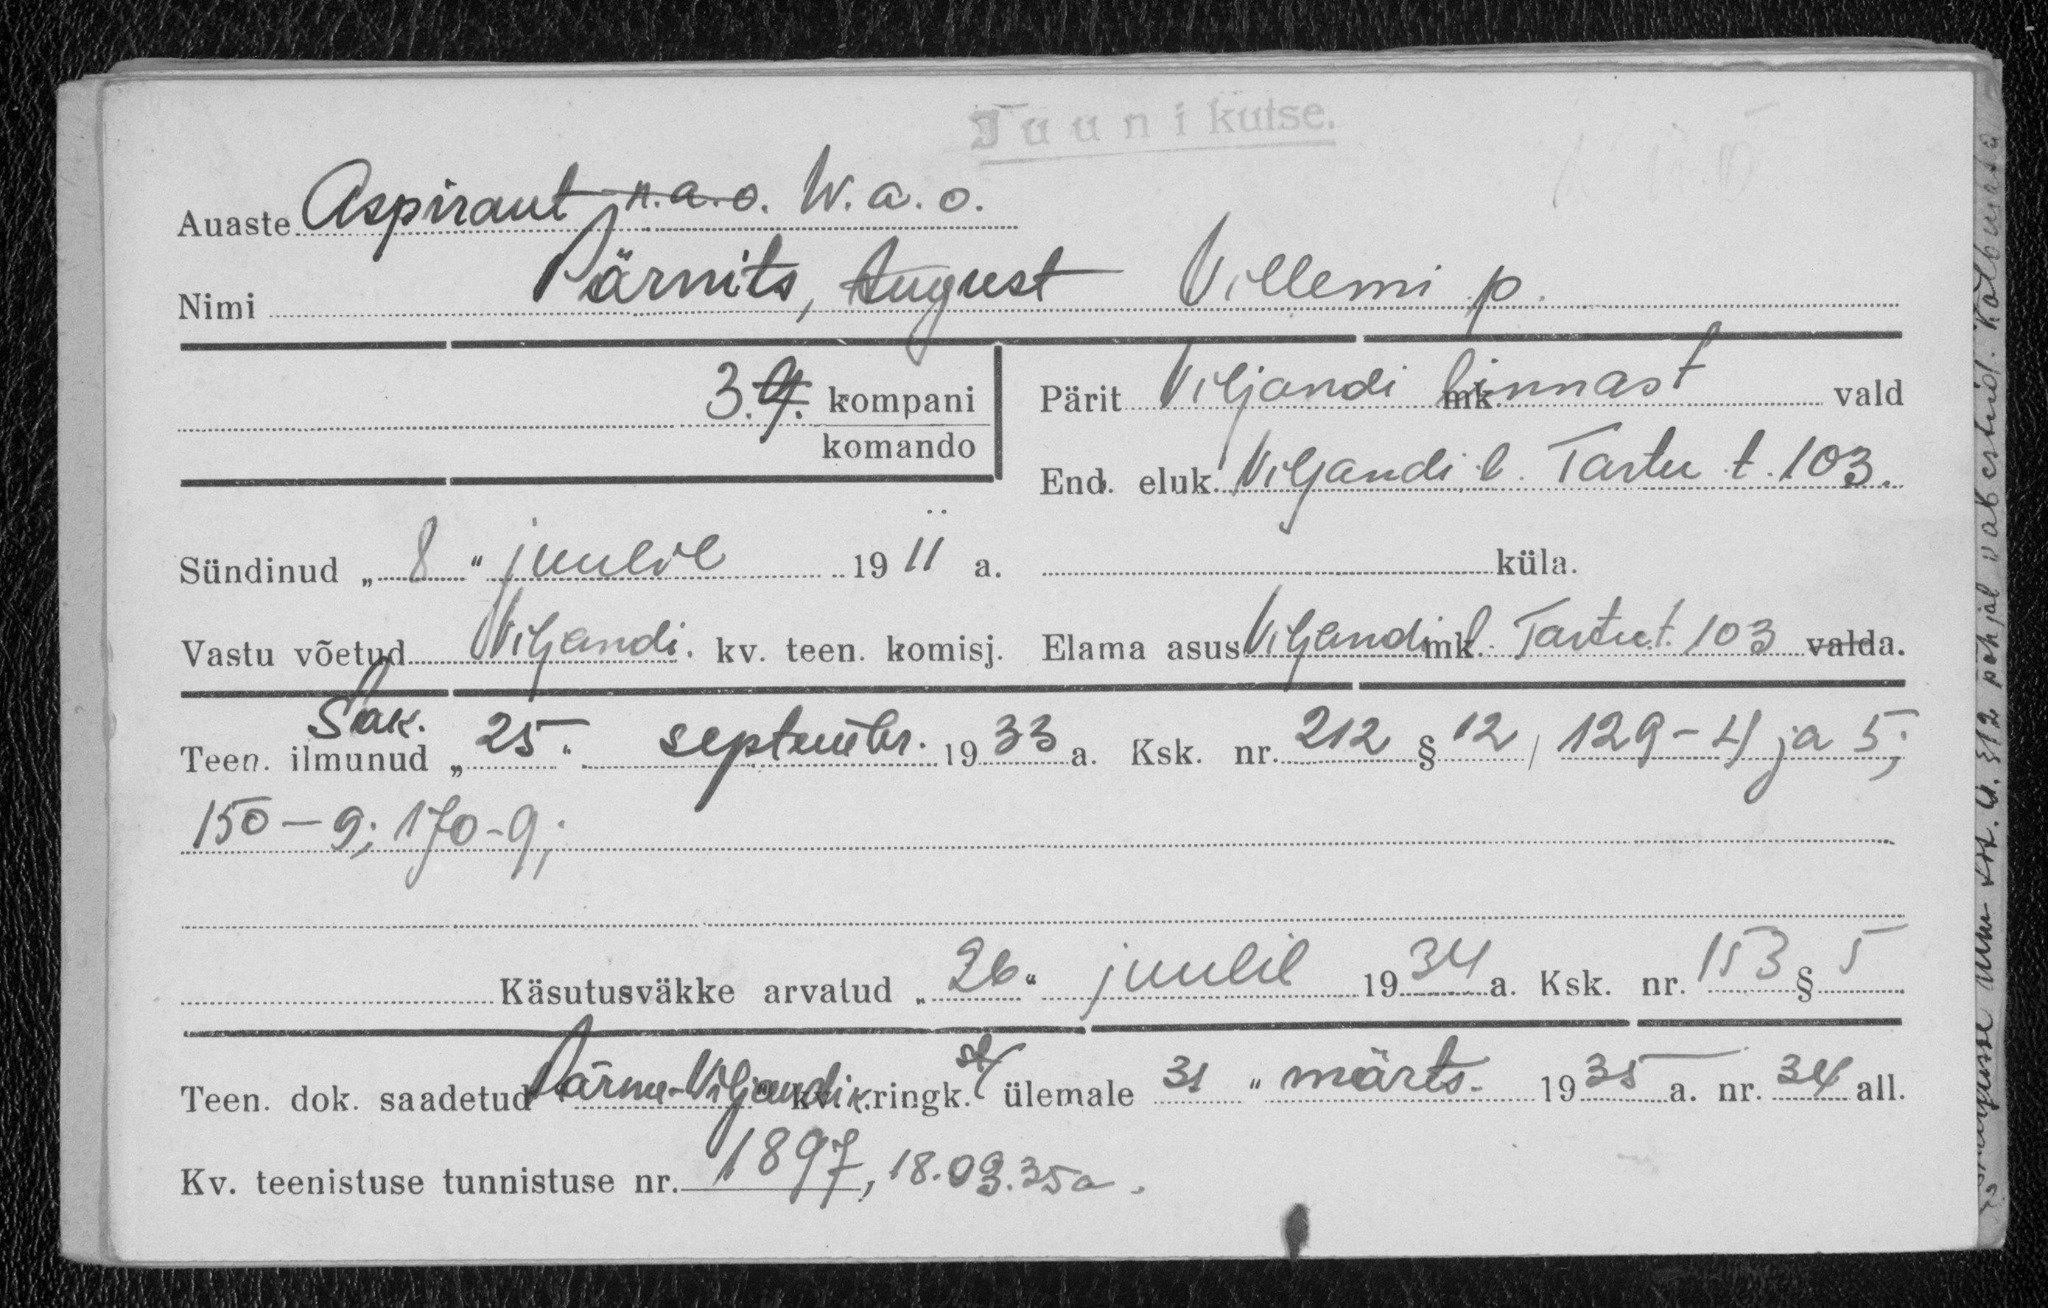 Juuni kutse.
Auaste Aspirant n.a.o. W.a.o.
Nimi Pärnits, August Villemi p.
3. 9. kompani
komando
Pärit Viljandi mk linnast vald
End. eluk. Viljandi l. Tartu t. 103.
Sündinud „ 8 “ juulil 19 11 a.
küla.
Vastu võetud Viljandi. kv. teen. komisj.
Elama asus Viljandi mk. l. Tartu t. 103 valda.
Teen. ilmunud „ 25. “ septembr. 19 33 a. Ksk. nr. 212 § 12 / 129-4 ja 5;
150-9; 170-9;
Käsutusväkke arvatud „ 26 “ juulil 19 34 a. Ksk. nr. 153 § 5
Teen. dok. saadetud Pärnu-Viljandi kv. ringk. ülemale 31 “ märts. 19 35 a. nr. 34 all.
Kv. teenistuse tunnistuse nr. 1897, 18.03.35 a.